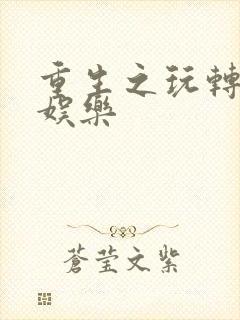 重生之玩轉
娛樂
蒼莹文紫